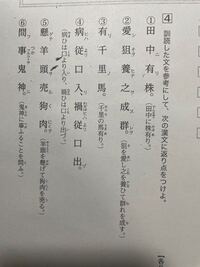 4 訓読した文を参考にして、次の漢文に返り点をつけよ。
① 田中有株。(田中に株有り。)
② 愛狙養之成群。(狙を愛し之を養ひて群れを成す。)
③ 有千里馬。(千里の馬有り。)
④ 病従口入、禍従口出。
(病ひは口より入り、禍ひは口より出づ。)
⑤ 懸羊頭売狗肉。(羊頭を懸げて狗肉を売る。)
⑥ 問事鬼神。(鬼神に事ふることを問ふ。)